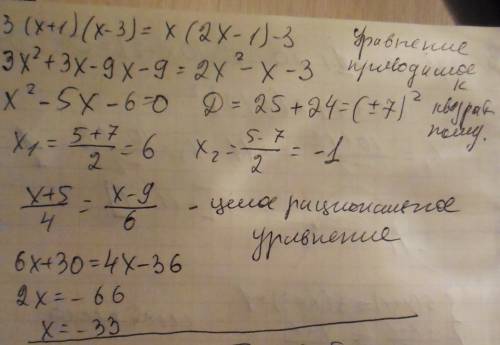 3(x+1)(x-3) = x(2x-1)-3
Уравнение приводимое к квадратному.
3x²+3x-9x-9 = 2x²-x-3
x²-5x-6=0 D = 25+24 = (±7)²
x₁ = (5+7)/2 = 6 x₂ = (5-7)/2 = -1
(x+5)/4 = (x-9)/6 - целое рациональное уравнение
6x+30=4x-36
2x=-66
x=-33